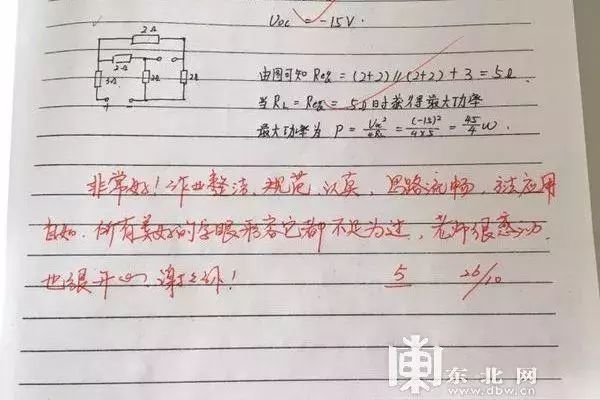 Uoc = -15V.
2Ω
2Ω
3Ω 2Ω 2Ω
由图可知 Req = (2+2)//(2+2) + 3 = 5Ω
当 RL = Req = 5Ω 时获得最大功率
最大功率为 P = Uoc²/4RL = (-15)²/4×5 = 45/4 W.
非常好!作业整洁,规范,认真,思路流畅,方法应用
自如.所有美好的字眼形容它都不足为过,老师很感动
也很开心,谢谢你!
5 26/10
東北网
www.dbw.cn